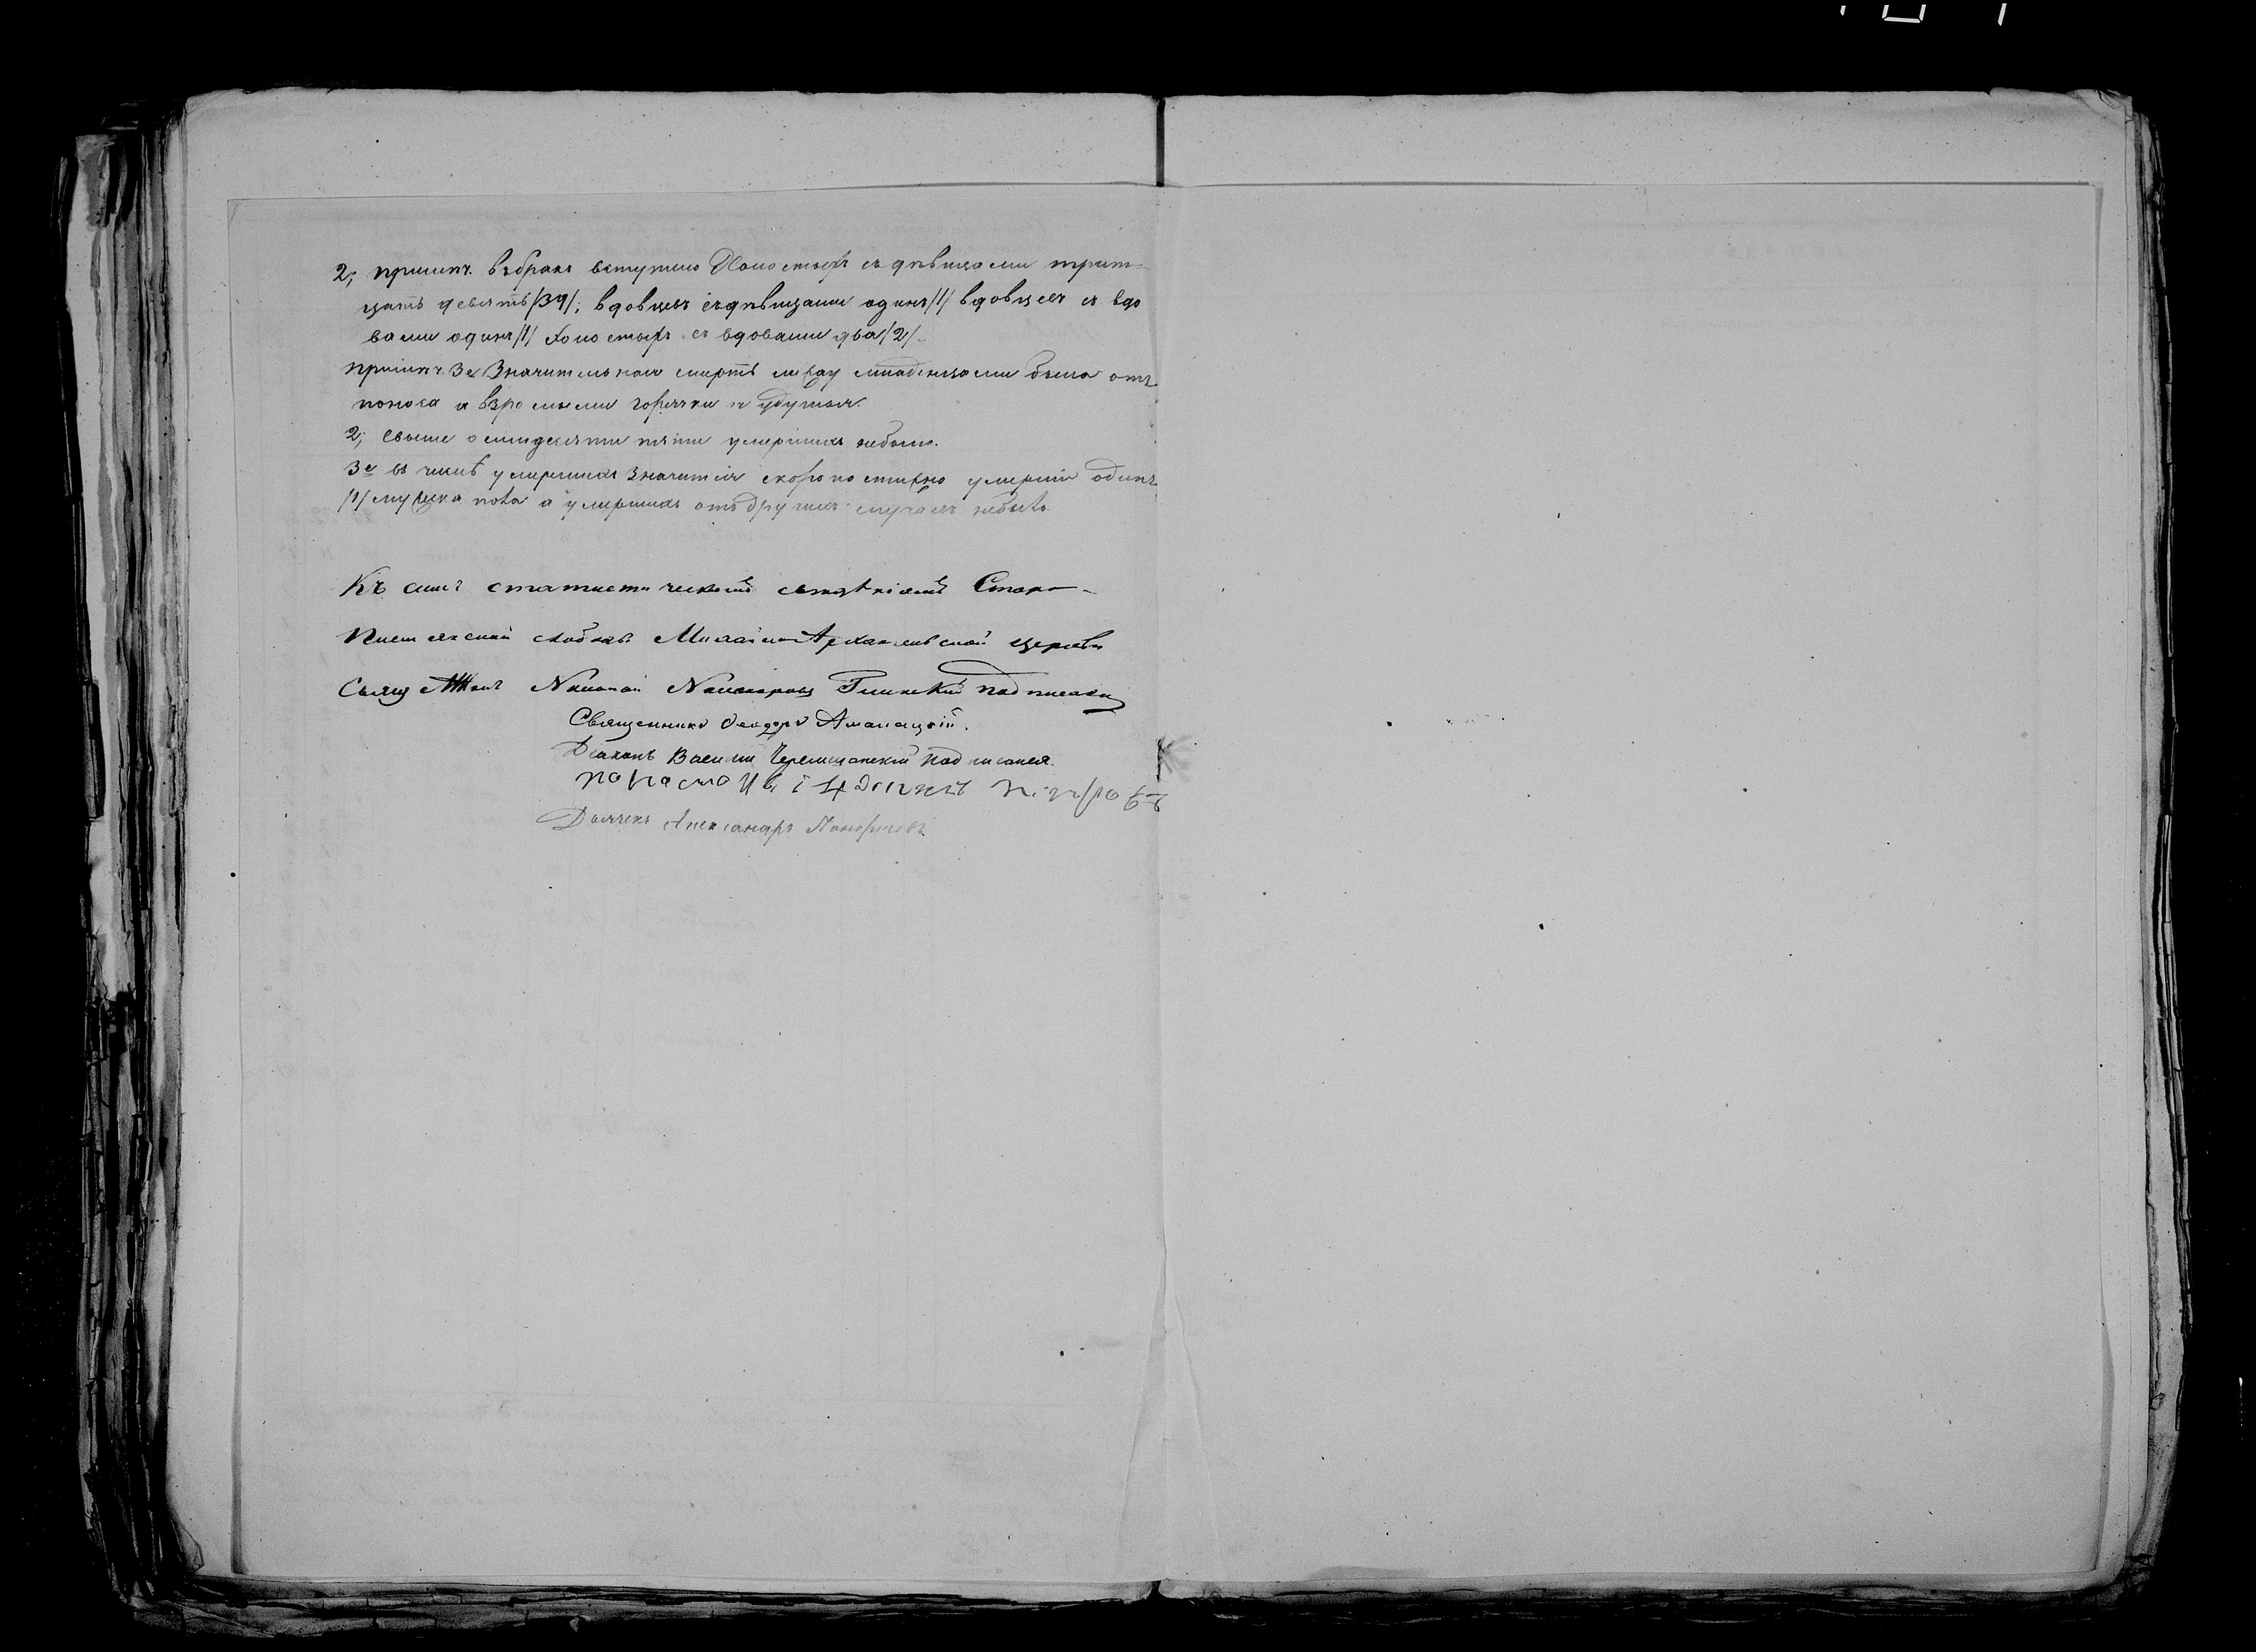 2; примѣч. въ бракъ вступило Холостыхъ съ дѣвицами трит-
цать девять /39/; вдовцевъ съ дѣвицами одинъ /1/ вдовцевъ съ вдо
вами одинъ /1/ холостыхъ съ вдовами два /2/.
примѣч. 3е Значительная смерть между младенцами была отъ
поноса а взрослыми горячки и удушья.
2; Свыше осмидесяти пяти умершихъ небыло.
3е въ числѣ умершихъ значится скоропостижно умершій одинъ
/1/ мужска пола а умершихъ отъ другихъ случаевъ небыло.
Къ симъ статистическимъ свѣдѣніямъ Старо-
слободы Михайло Архангельской церкви
Свящ Глинскій подписался
Священникъ Феодоръ
Діаконъ Василій подписался.
Дьячекъ Александръ